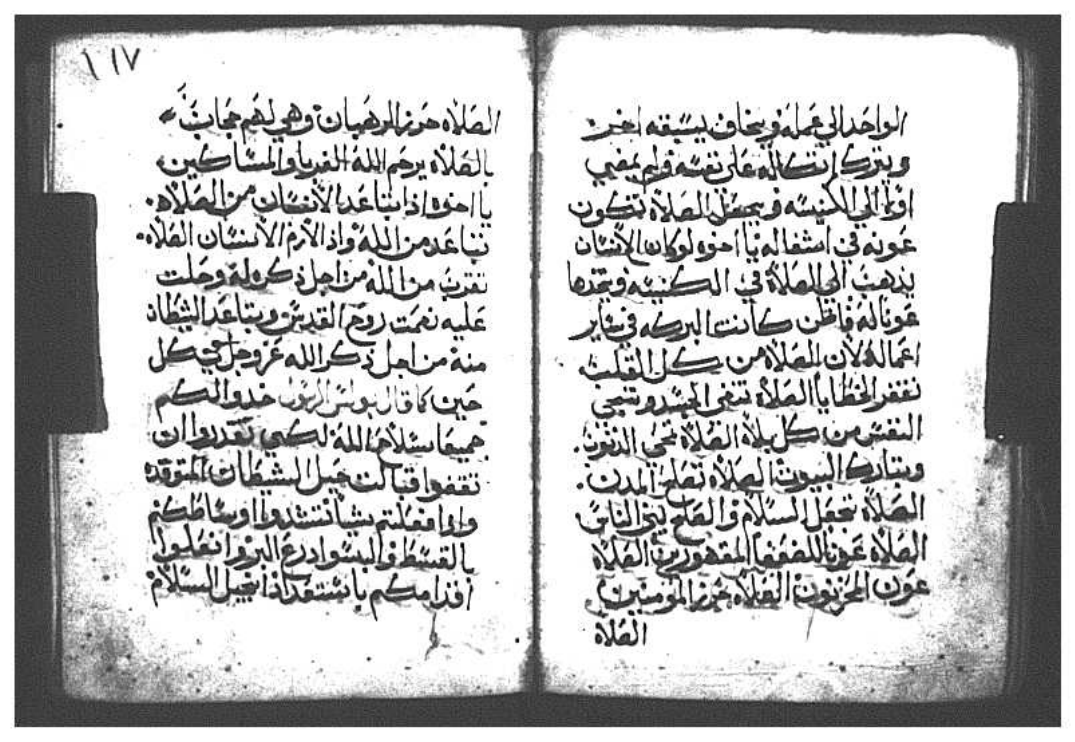 الواحد الي عمله ويخاف يسبقه اخر
ويترك اتكاله علي نفسه ولم يمضي
اولا الي الكنيسه ويجعل الصلاة تكون
عونه في اشغاله يا اخوه لو كان الانسان
يذهب الي الصلاة في الكنيسه ويتخدها
عونا له فاظن كانت البركه في ساير
اعماله لان الصلاة من كل القلب
تغفر الخطايا الصلاة تنقي الجسد وتنجي
النفس من كل بلاء الصلاة تمحي الدنوب
وتبارك البيوت الصلاة تصلح المدن
الصلاة تجعل السلام والصلح بين الناس
الصلاة عونا للضعفا المقهورين الصلاة
عون المحزنون الصلاة حرز المومنين
الصلاة
١١٧
الصلاة حرز الرهبان وهي لهم حجاب
بالصلاة يرحم الله الغربا والمساكين
يا اخوة اذا تباعد الانسان من الصلاه
تباعد من الله واذا لازم الانسان الصلاه
تقرب من الله من اجل ذكره له وحلت
عليه نعمت روح القدس ويتباعد الشيطان
منه من اجل ذكر الله عز وجل في كل
حين كما قال بولس الرسول خدوا لكم
جميعا سلاح الله لكي تقدروا ان
تقفوا قبالت حيل الشيطان المتوقده
واذا فعلتم شيا تشدوا اوساطكم
بالقسط والبسوا درع البر وانعلوا
اقدامكم باستعداد انجيل السلام